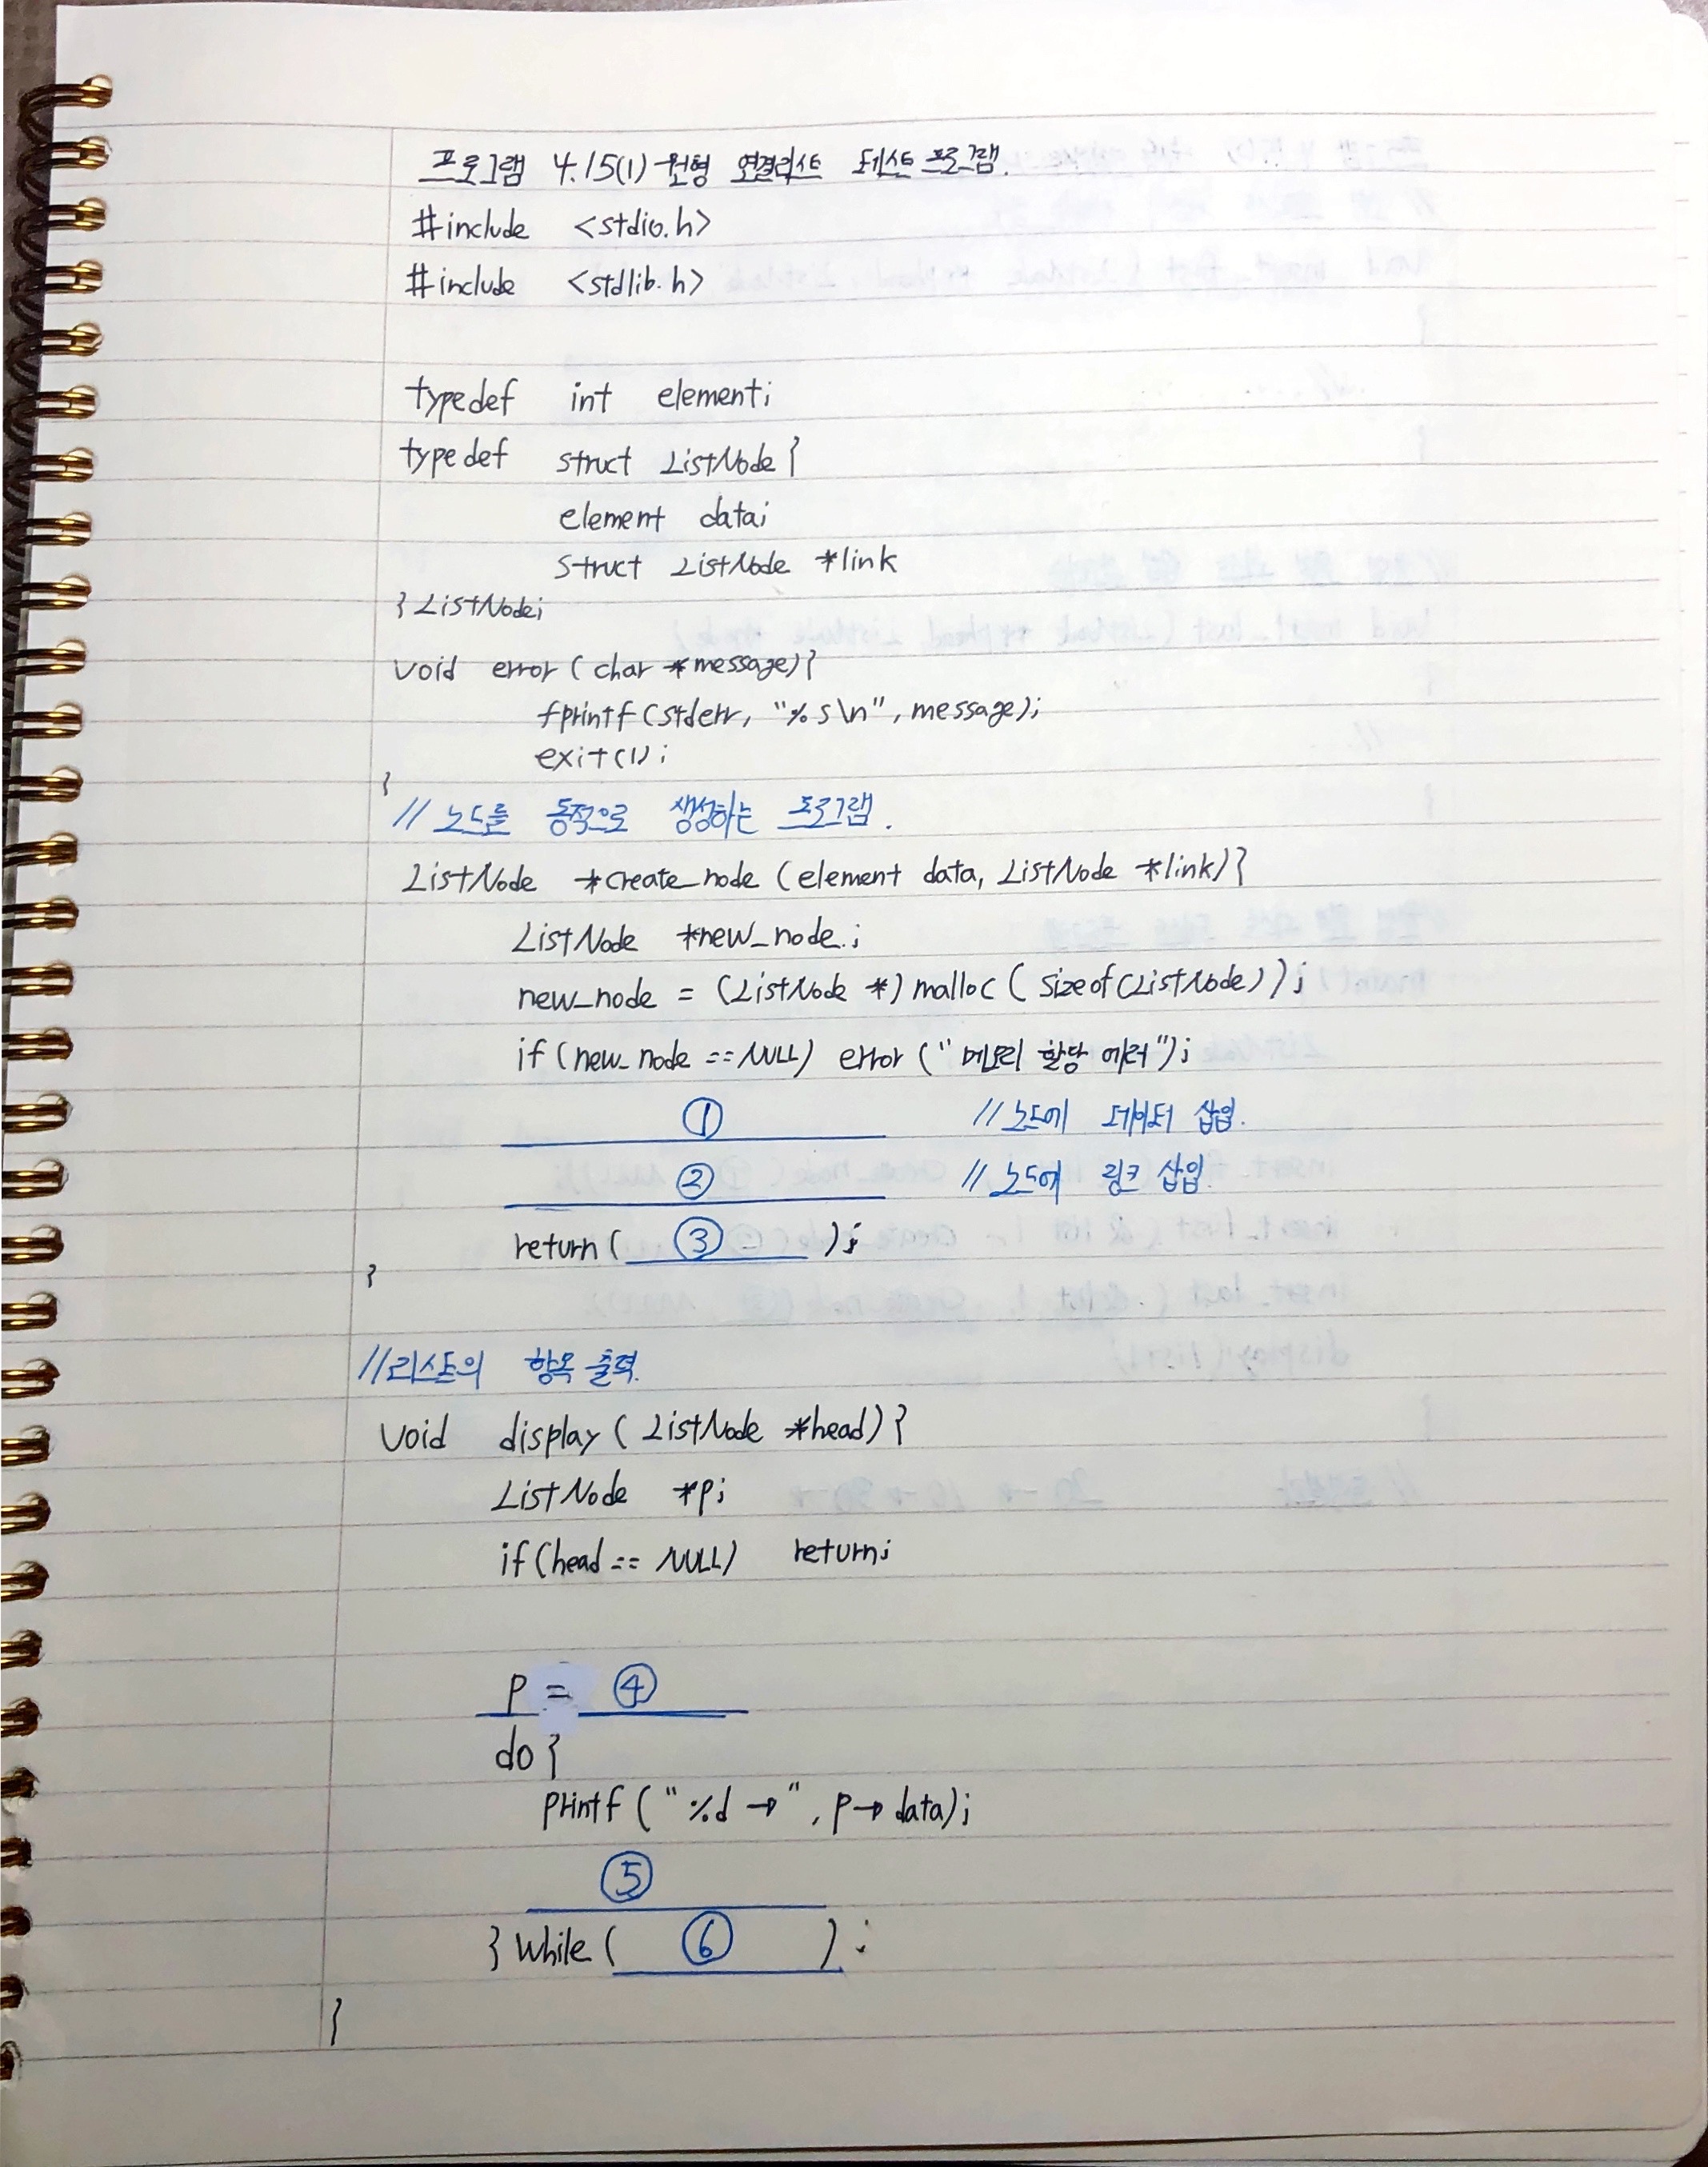 프로그램 4.15(1)-원형 연결리스트 테스트 프로그램.
#include <stdio.h>
#include <stdlib.h>
typedef int element;
typedef struct ListNode {
element data;
struct ListNode *link
} ListNode;
void error (char *message) {
fprintf (stderr, "%s\n", message);
exit(1);
}
// 노드를 동적으로 생성하는 프로그램.
ListNode *create_node (element data, ListNode *link) {
ListNode *new_node;
new_node = (ListNode *) malloc ( sizeof (ListNode) );
if (new_node == NULL) error (" 메모리 할당 에러");
① // 노드에 데이터 삽입.
② // 노드에 링크 삽입.
return ( ③ );
}
//리스트의 항목 출력.
void display ( ListNode *head) {
ListNode *p;
if (head == NULL) return;
p = ④
do {
printf ( "%d →", p→ data);
⑤
} while ( ⑥ );
}